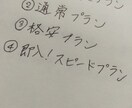 ②通常プラン
③格安プラン
④即入！スピードプラン